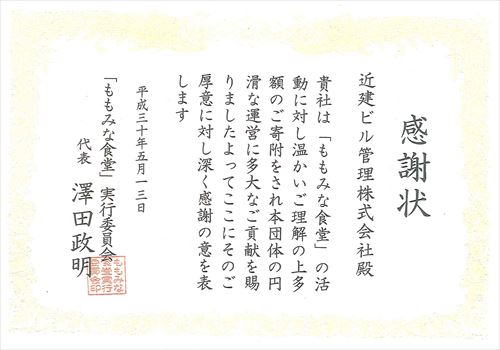 感謝状
近建ビル管理株式会社殿
貴社は「ももみな食堂」の活
動に対し温かいご理解の上多
額のご寄附をされ本団体の円
滑な運営に多大なご貢献を賜
りましたよってここにそのご
厚意に対し深く感謝の意を表
します
平成三十年五月一三日
「ももみな食堂」実行委員会
代表 澤田政明
ももみな
食堂実行
委員会印